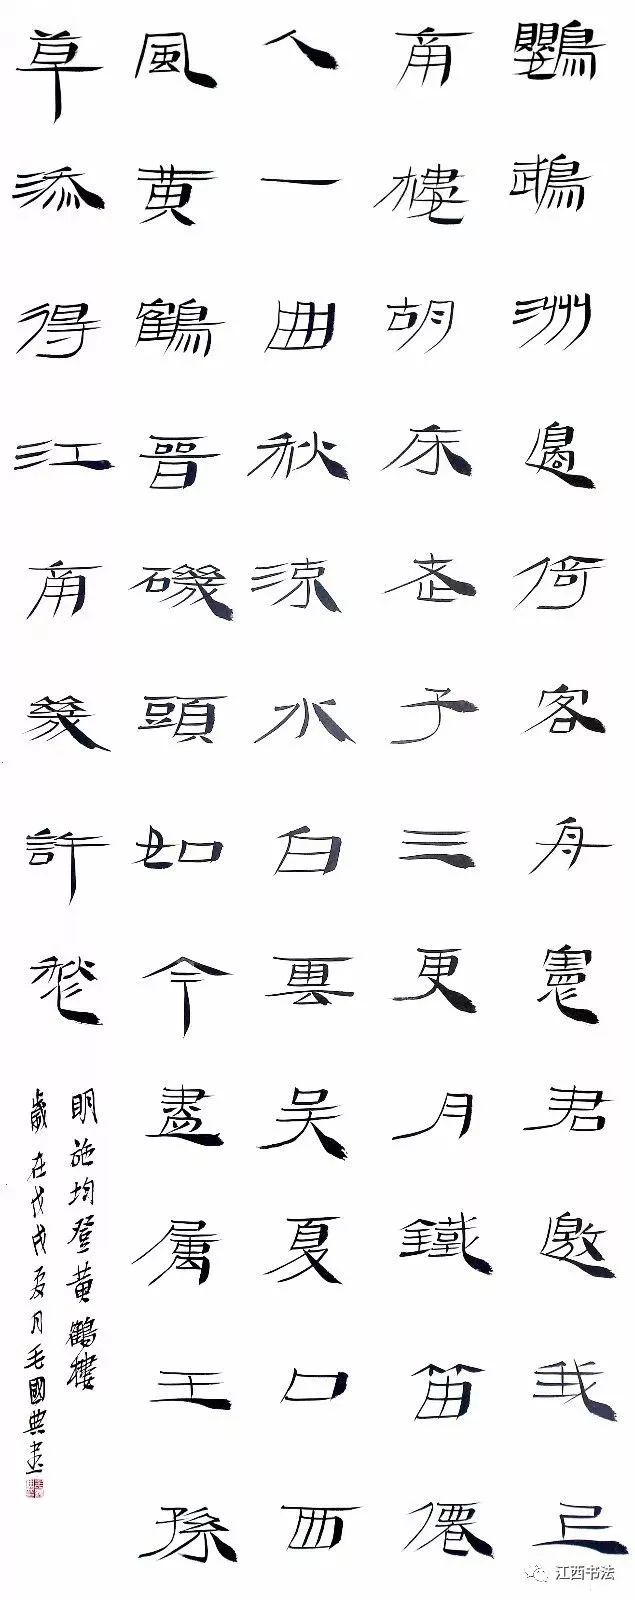 鸚鵡洲邊倚客舟憲君邀我上
南樓胡床老子三更月鐵笛僊
人一曲秋涼水白雲吳夏口西
風黃鶴晉磯頭如今盡屬王孫
草添得江南幾許愁
明施均登黃鶴樓
歲在戊戌夏月毛國典書
江西书法